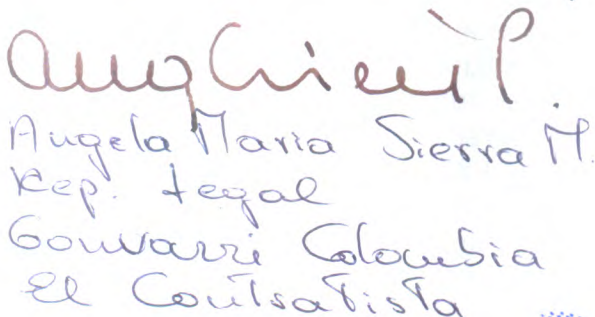 Angela Maria Sierra M.
Rep. Legal
Gonvarri Colombia
El Contratista